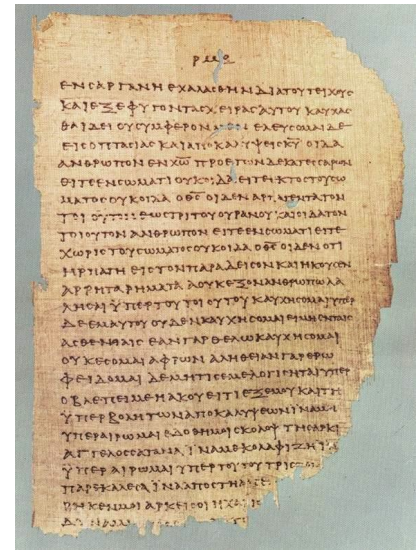 ΕΝϹΑΡΓΑΝΗΕΧΑΛΑϹΘΗΝΔΙΑΤΟΥΤΕΙΧΟΥϹ
ΚΑΙΕΞΕΦΥΓΟΝΤΑϹΧΕΙΡΑϹΑΥΤΟΥΚΑΥΧΑϹ
ΘΑΙΔΕΙΟΥϹΥΜΦΕΡΟΝ ΕΛΕΥϹΟΜΑΙΔΕ
ΕΙϹΟΠΤΑϹΙΑϹΚΑΙΑΠΟΚΑΛΥΨΕΙϹΚΥ̅ΟΙΔΑ
ΑΝΘΡΩΠΟΝΕΝΧΩ̅ΠΡΟΕΤΩΝΔΕΚΑΤΕϹϹΑΡΩΝ
ΕΙΤΕΕΝϹΩΜΑΤΙΟΥΚΟΙΔΑΕΙΤΕΕΚΤΟϹΤΟΥϹΩ
ΜΑΤΟϹΟΥΚΟΙΔΑΟΘϹ̅ΟΙΔΕΝΑΡΠΑΓΕΝΤΑΤΟΝ
ΤΟΙΟΥΤΟΝΕΩϹΤΡΙΤΟΥΟΥΡΑΝΟΥΚΑΙΟΙΔΑΤΟΝ
ΤΟΙΟΥΤΟΝΑΝΘΡΩΠΟΝΕΙΤΕΕΝϹΩΜΑΤΙΕΙΤΕ
ΧΩΡΙϹΤΟΥϹΩΜΑΤΟϹΟΥΚΟΙΔΑΟΘϹ̅ΟΙΔΕΝΟΤΙ
ΗΡΠΑΓΗΕΙϹΤΟΝΠΑΡΑΔΕΙϹΟΝΚΑΙΗΚΟΥϹΕΝ
ΑΡΡΗΤΑΡΗΜΑΤΑΑΟΥΚΕΞΟΝΑΝΘΡΩΠΩΛΑ
ΛΗϹΑΙΫΠΕΡΤΟΥΤΟΙΟΥΤΟΥΚΑΥΧΗϹΟΜΑΙΥΠΕΡ
ΔΕΕΜΑΥΤΟΥΟΥΔΕΝΚΑΥΧΗϹΟΜΑΙΕΙΜΗΕΝΤΑΙϹ
ΑϹΘΕΝΕΙΑΙϹΕΑΝΓΑΡΘΕΛΩΚΑΥΧΗϹΟΜΑΙ
ΟΥΚΕϹΟΜΑΙΑΦΡΩΝΑΛΗΘΕΙΑΝΓΑΡΕΡΩ
ΦΕΙΔΟΜΑΙΔΕΜΗΤΙϹΕΜΕΛΟΓΙϹΗΤΑΙΥΠΕΡ
ΟΒΛΕΠΕΙΜΕΗΑΚΟΥΕΙΤΙΕΞΕΜΟΥΚΑΙΤΗ
ΫΠΕΡΒΟΛΗΤΩΝΑΠΟΚΑΛΥΨΕΩΝΪΝΑΜΗ
ΥΠΕΡΑΙΡΩΜΑΙΕΔΟΘΗΜΟΙϹΚΟΛΟΨΤΗϹΑΡΚΙ
ΑΓΓΕΛΟϹϹΑΤΑΝΑΪΝΑΜΕΚΟΛΑΦΙΖΗΪΝΑ
ΫΠΕΡΑΙΡΩΜΑΙΥΠΕΡΤΟΥΤΟΥΤΡΙϹ
ΠΑΡΕΚΑΛΕϹΑΪΝΑΑΠΟϹΤΗ
ΡΗΚΕΝΜΟΙΑΡΚΕΙϹΟΙΗΧΑΡΙϹ
ΔΥΝΑΜ